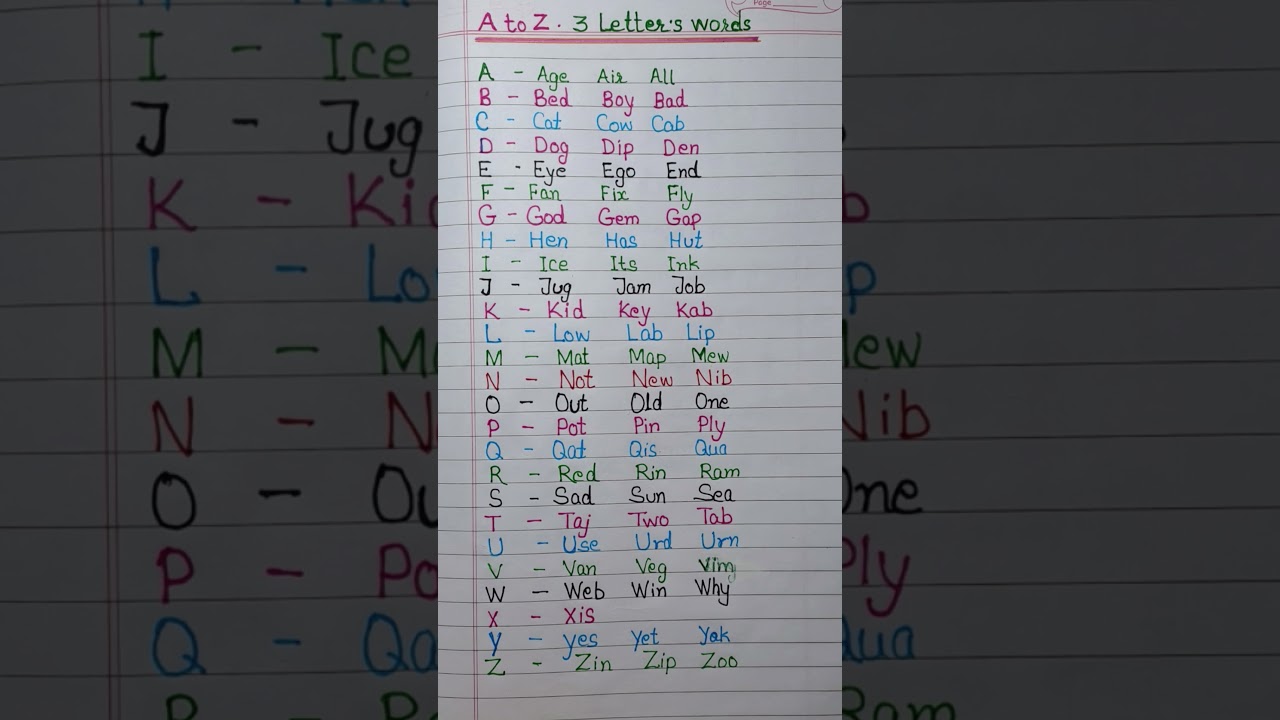 Page
A to Z. 3 Letter's words
A - Age Air All
B - Bed Boy Bad
C - Cat Cow Cab
D - Dog Dip Den
E - Eye Ego End
F - Fan Fix Fly
G - God Gem Gap
H - Hen Has Hut
I - Ice Its Ink
J - Jug Jam Job
K - Kid Key Kab
L - Low Lab Lip
M - Mat Map Mew
N - Not New Nib
O - Out Old One
P - Pot Pin Ply
Q - Qat Qis Qua
R - Red Rin Ram
S - Sad Sun Sea
T - Taj Two Tab
U - Use Urd Urn
V - Van Veg Vim
W - Web Win Why
X - Xis
Y - yes yet yak
Z - Zin Zip Zoo